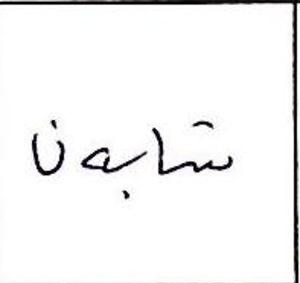 شابەن